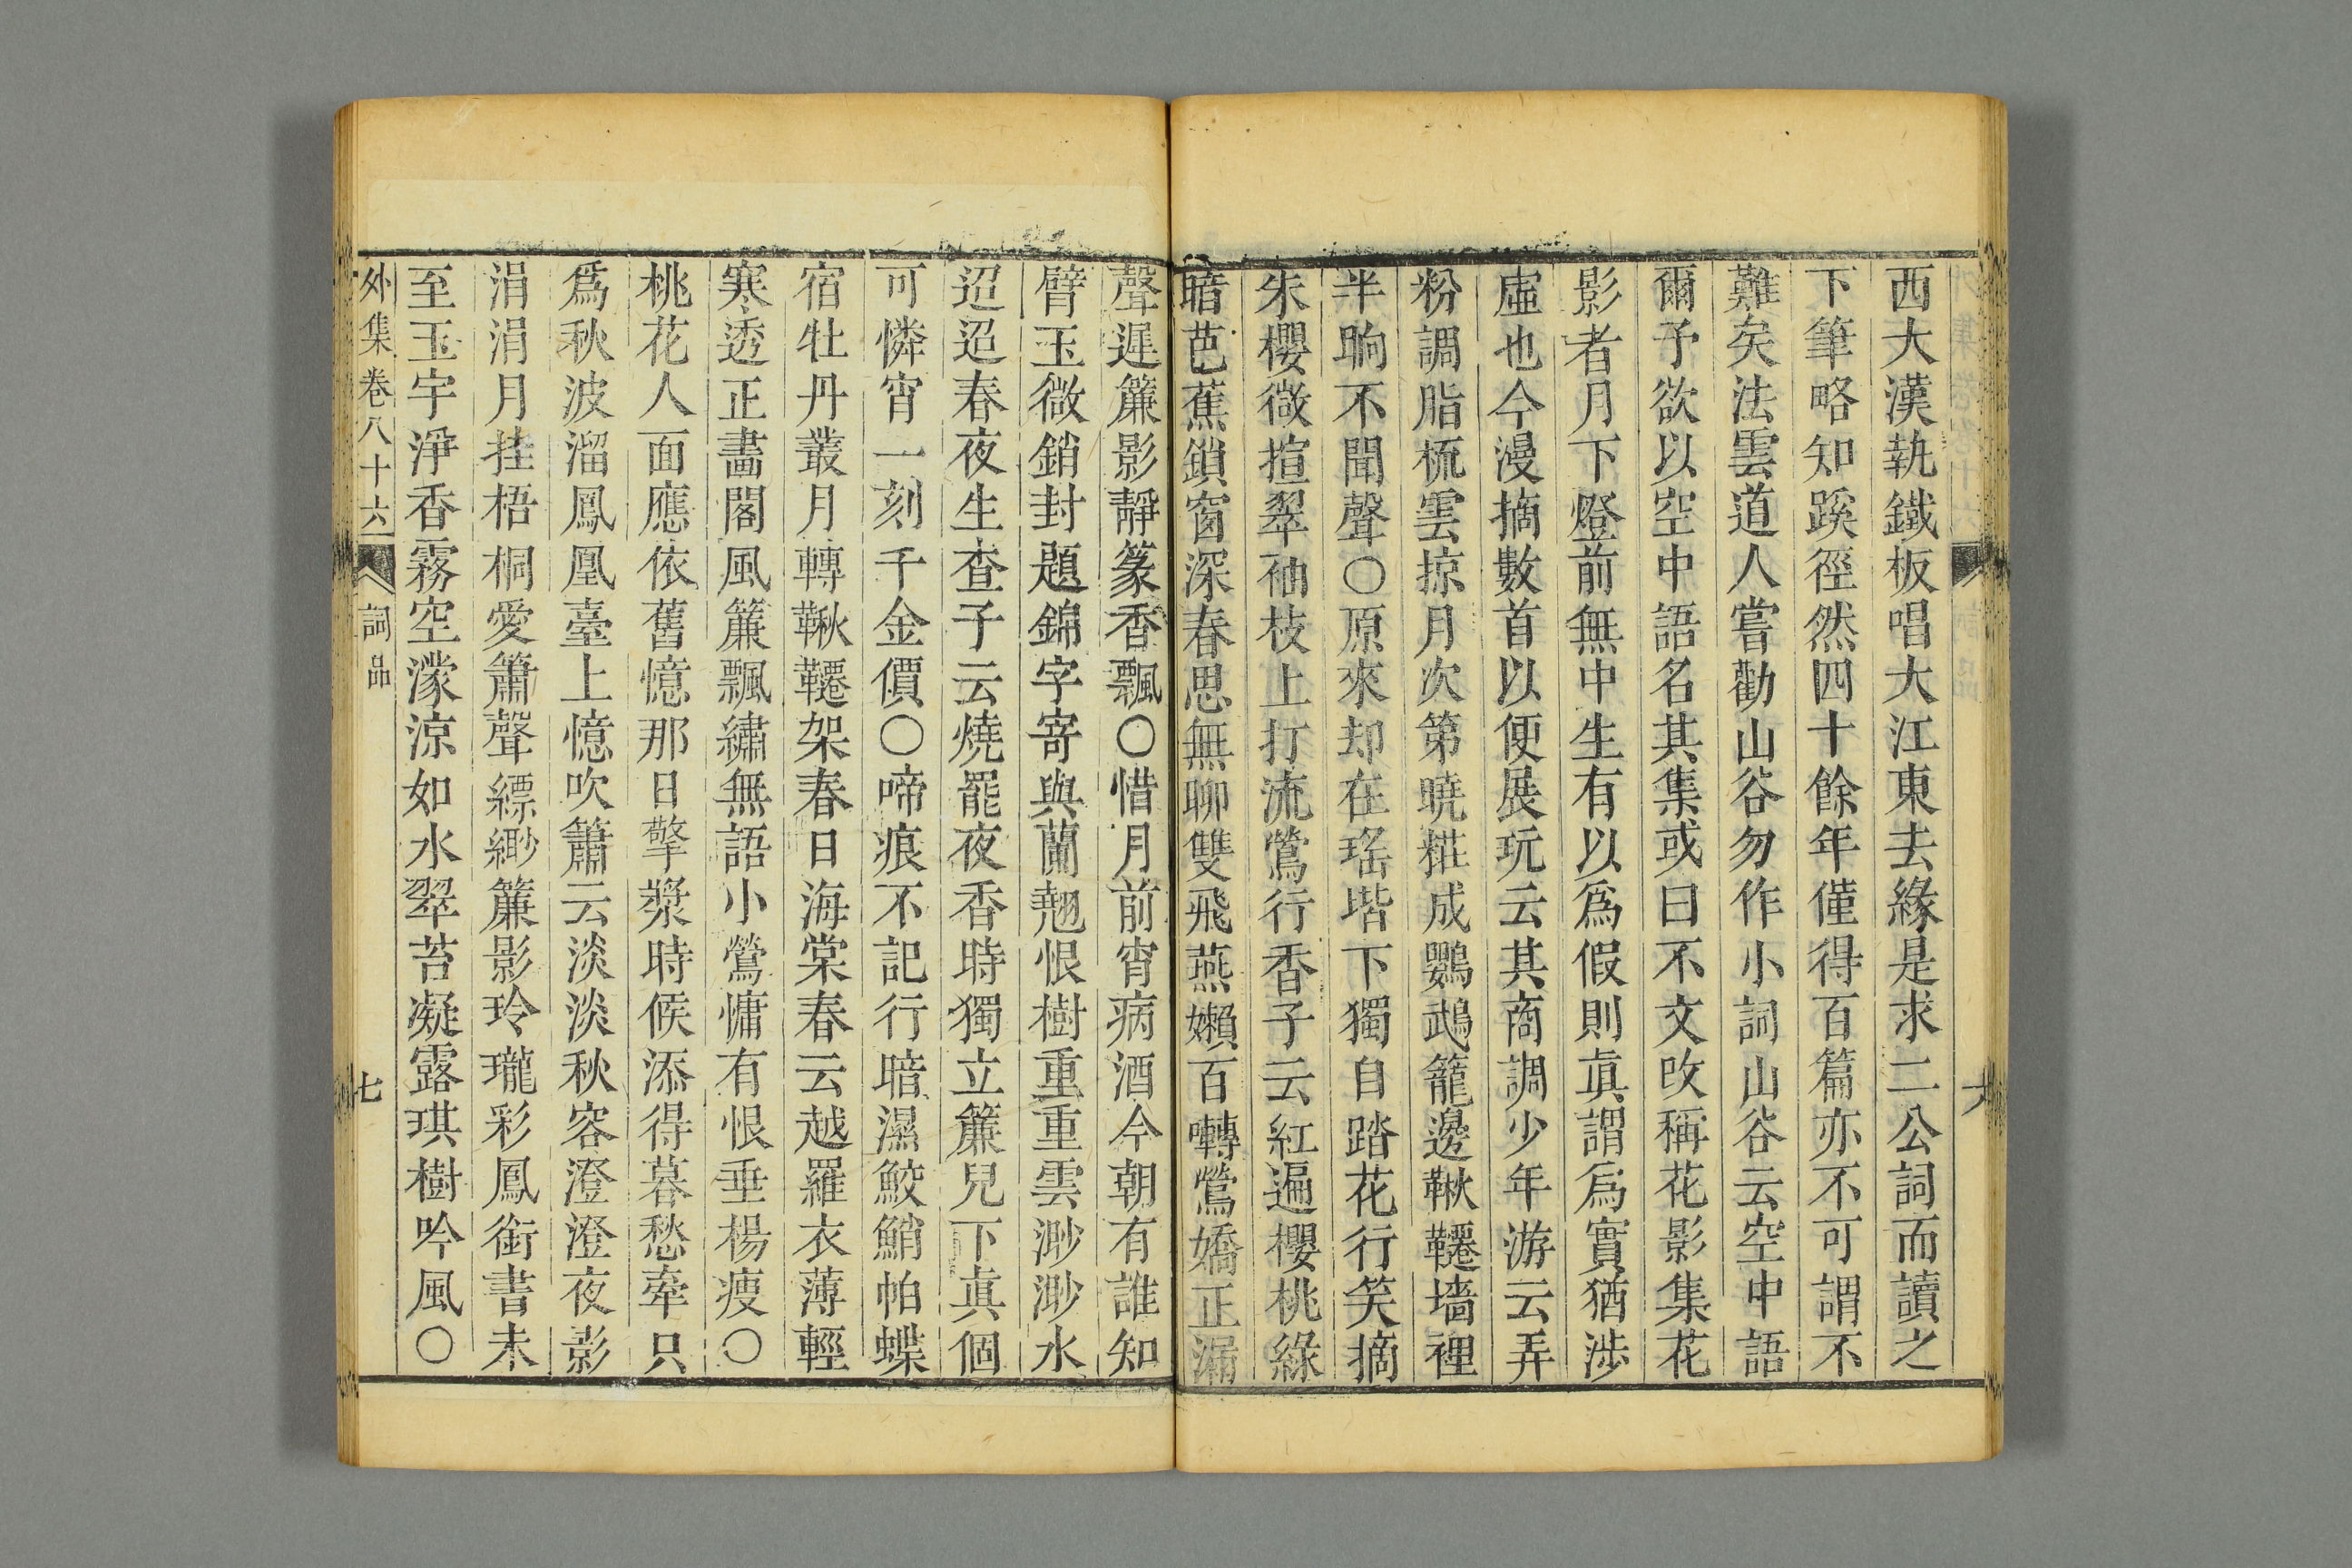 西大漢執鐵板唱大江東去緣是求二公詞而讀之
下筆略知蹊徑然四十餘年僅得百篇亦不可謂不
難矣法雲道人嘗勸山谷勿作小詞山谷云空中語
爾予欲以空中語名其集或曰不文改稱花影集花
影者月下燈前無中生有以爲假則眞謂爲實猶涉
虛也今漫摘數首以便展玩云其商調少年游云弄
粉調脂梳雲掠月次第曉糚成鸚鵡籠邊鞦韆墻裡
半晌不聞聲○原來却在瑤堦下獨自踏花行笑摘
朱櫻微揎翠袖枝上打流鶯行香子云紅遍櫻桃綠
暗芭蕉鎖窗深春思無聊雙飛燕嬾百囀鶯嬌正漏
聲遲簾影靜篆香飄○惜月前宵病酒今朝有誰知
臂玉微銷封題錦字寄與蘭翹恨樹重重雲渺渺水
迢迢春夜生查子云燒罷夜香時獨立簾兒下眞個
可憐宵一刻千金價○啼痕不記行暗濕鮫鮹帕蝶
宿牡丹叢月轉鞦韆架春日海棠春云越羅衣薄輕
寒透正畵閣風簾飄繡無語小鶯慵有恨垂楊瘦○
桃花人面應依舊憶那日擎漿時候添得暮愁牽只
爲秋波溜鳳凰臺上憶吹簫云淡淡秋容澄澄夜影
涓涓月挂梧桐愛簫聲縹緲簾影玲瓏彩鳳銜書未
至玉宇淨香霧空濛涼如水翠苔凝露琪樹吟風○
外集卷八十六 詞品 七